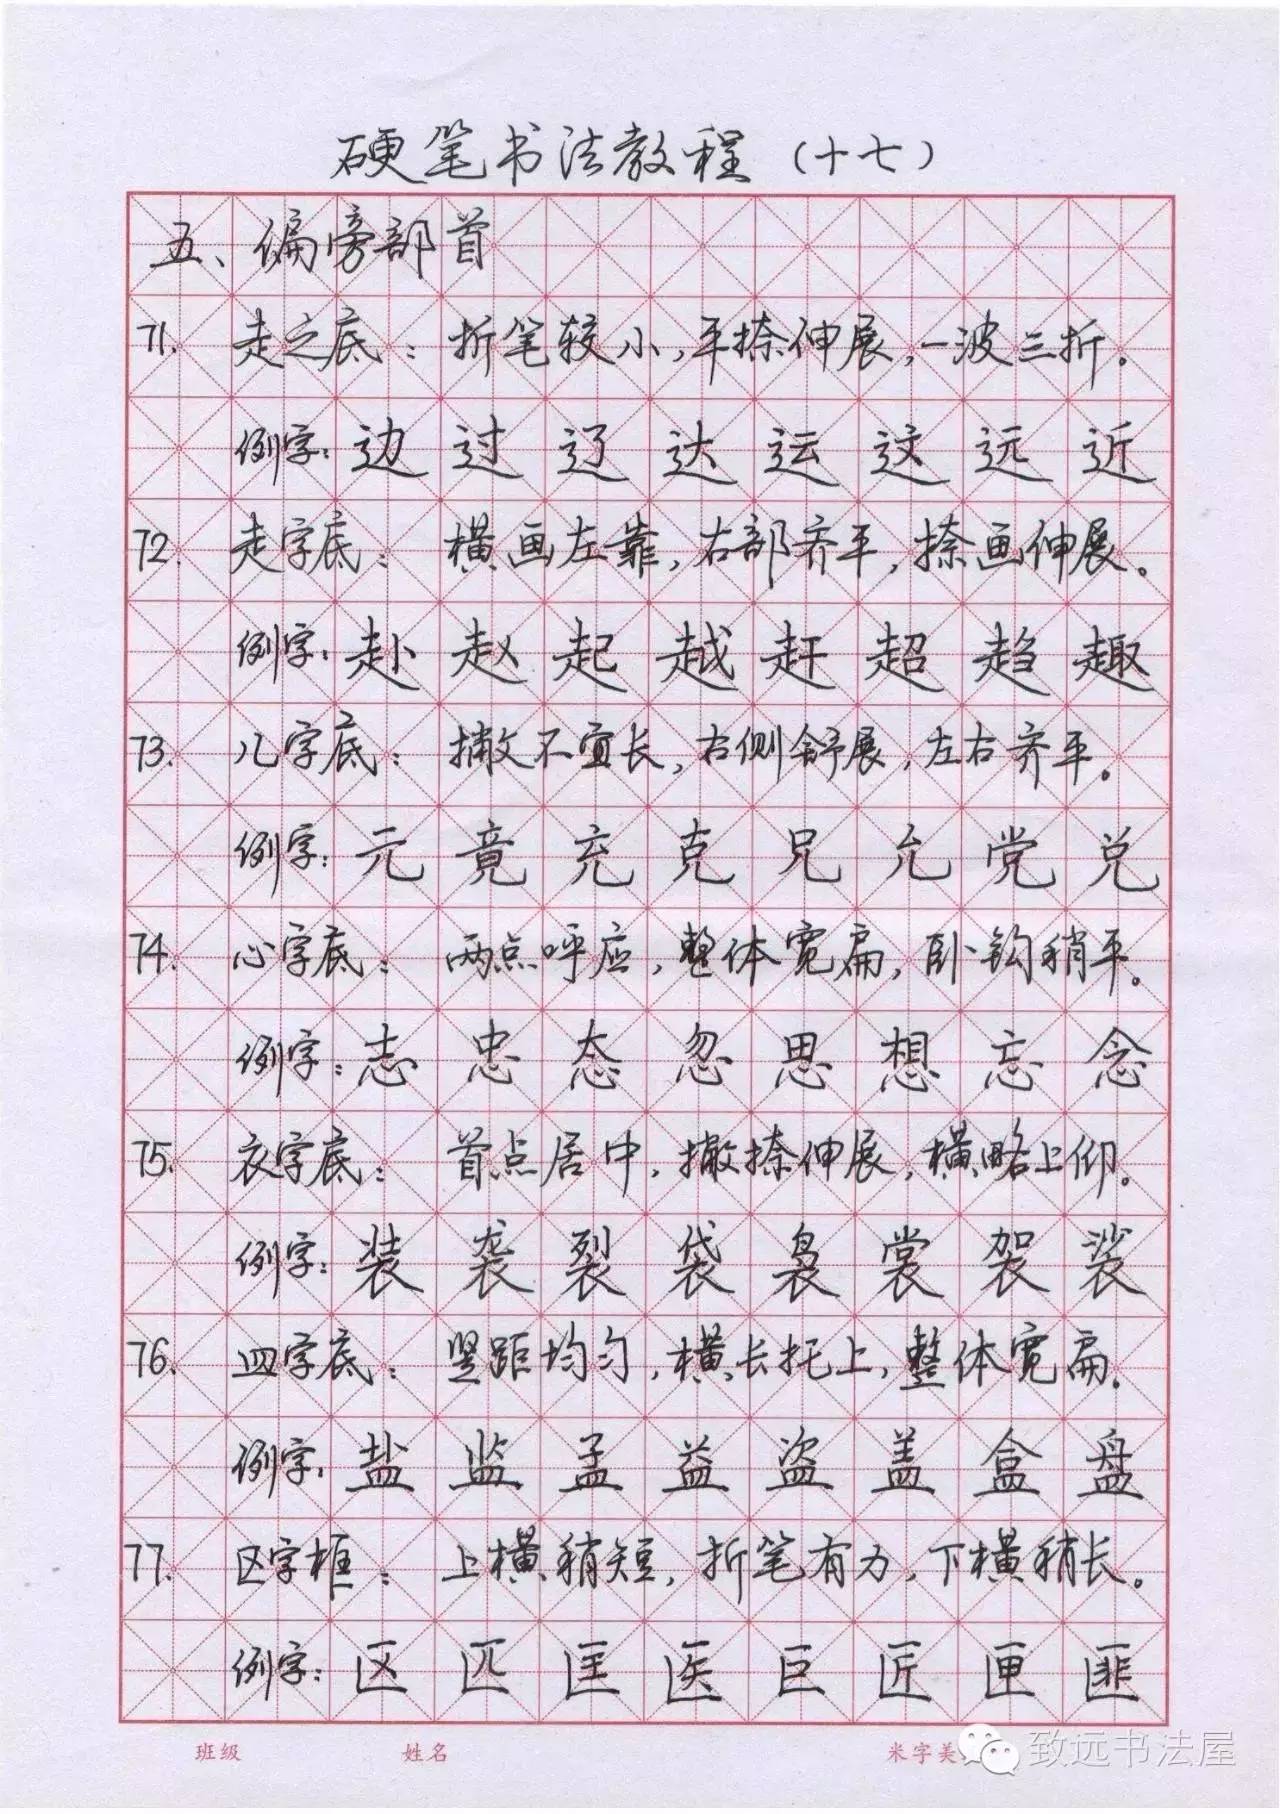 硬笔书法教程（十七）
五、偏旁部首
71. 走之底：折笔较小，平捺伸展，一波三折。
例字：边 过 辽 达 运 这 远 近
72. 走字底：横画左靠，右部齐平，捺画伸展。
例字：赴 赵 起 越 赶 超 趋 趣
73. 儿字底：撇不宜长，右侧舒展，左右齐平。
例字：元 竟 充 克 兄 允 党 兑
74. 心字底：两点呼应，整体宽扁，卧钩稍平。
例字：志 忠 态 忽 思 想 忘 念
75. 衣字底：首点居中，撇捺伸展，横略上仰。
例字：装 袭 裂 袋 袅 裳 袈 裟
76. 皿字底：竖距均匀，横长托上，整体宽扁。
例字：盐 监 孟 益 盗 盖 盒 盘
77. 区字框：上横稍短，折笔有力，下横稍长。
例字：区 匹 匡 医 巨 匠 匣 匪
班级 姓名 米字美
致远书法屋